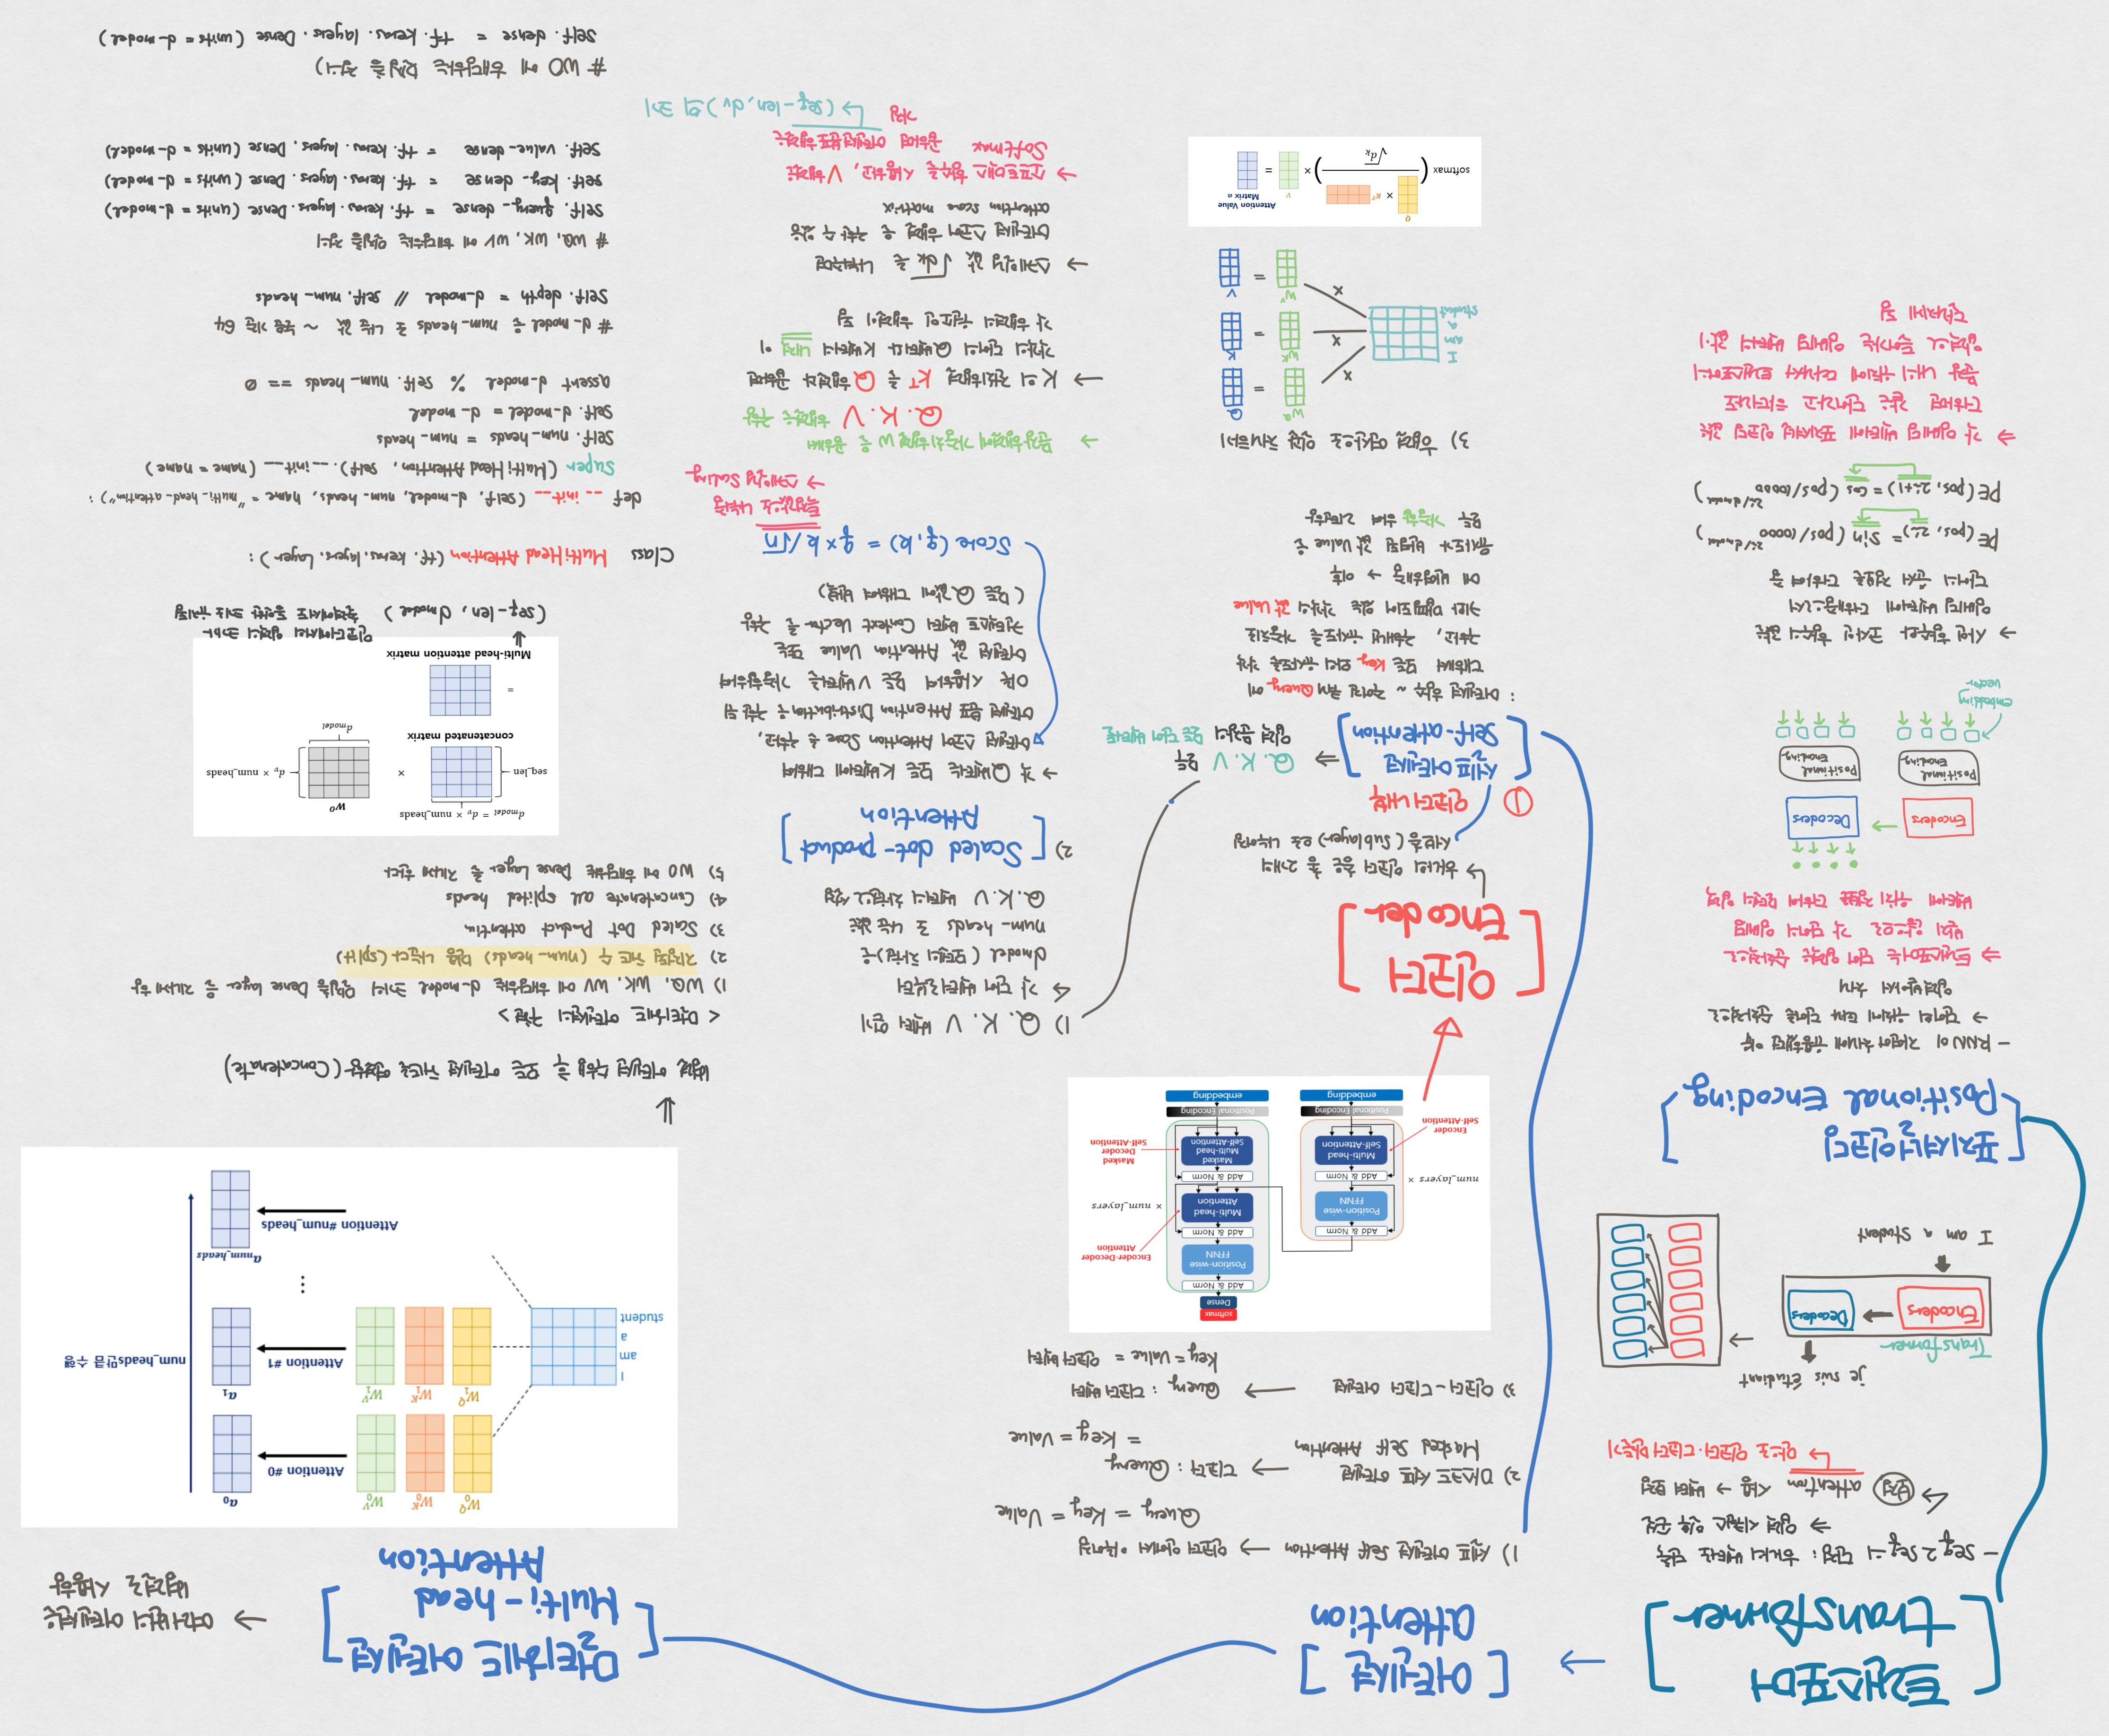 [트랜스포머
transformer]
- seq2seq의 단점: 하나의 벡터로 단축
⇒ 입력 시퀀스 일부 손실
보정 attention 사용 → 벡터 보정
만으로 인코더·디코더 만들기
je suis étudiant
Transformer
Encoders → Decoders
I am a student
[포지셔널인코딩
Positional Encoding]
- RNN이 자연어 처리에 유용했던 이유
→ 단어의 위치에 따라 단어를 순차적으로
입력받아서 처리
⇒ 트랜스포머는 단어 입력을 순차적으로
받지 않으므로 각 단어의 임베딩
벡터에 위치 정보를 더하여 모델의 입력
Encoders → Decoders
Positional Encoding
Positional Encoding
embedding vector
→ 사인 함수와 코사인 함수의 값을
임베딩 벡터에 더해줌으로서
단어의 순서 정보를 더하여 줌
PE(pos, 2i) = sin (pos/10000^2i/dmodel)
PE(pos, 2i+1) = cos (pos/10000^2i/dmodel)
⇒ 각 임베딩 벡터에 포지셔널 인코딩 값을
더하면 같은 단어라고 하더라도
문장 내의 위치에 따라서 트랜스포머의
입력으로 들어가는 임베딩 벡터의 값이
달라지게 됨
→ [어텐션]
attention
1) 셀프 어텐션 Self Attention → 인코더 안에서 이루어짐
Query = Key = Value
2) 마스크드 셀프 어텐션 → 디코더 : Query
Masked Self Attention = Key = Value
3) 인코더-디코더 어텐션 → Query : 디코더 벡터
Key = Value = 인코더 벡터
softmax
Dense
Add & Norm
Position-wise FFNN
Encoder-Decoder Attention
Add & Norm
Multi-head Attention
× num_layers
Add & Norm
Masked Multi-head Self-Attention
Masked Decoder Self-Attention
Positional Encoding
embedding
Add & Norm
Position-wise FFNN
num_layers ×
Add & Norm
Multi-head Self-Attention
Encoder Self-Attention
Positional Encoding
embedding
[인코더
Encoder]
하나의 인코더 층은 총 2개의
서브층(Sublayer)으로 나누어짐
① 인코더 내부
[셀프어텐션
Self-attention] ⇒ Q.K.V 모두
입력 문장의 모든 단어 벡터들
: 어텐션 함수 ~ 주어진 쿼리 Query 에
대해서 모든 Key 와의 유사도를 각각
구하고, 구해낸 유사도를 가중치로
키와 맵핑되어 있는 각각의 값 Value
에 반영해줌 → 이후
유사도가 반영된 값 Value 을
모두 가중합 하여 리턴함
1) Q.K.V 벡터 얻기
↳ 각 단어 벡터로부터
dmodel (모델의 차원)을
num_heads 로 나눈 값을
Q.K.V 벡터의 차원으로 설정
2) [Scaled dot-product
Attention]
→ 각 Q벡터는 모든 K벡터에 대하여
어텐션 스코어 Attention Score 를 구하고,
어텐션 분포 Attention Distribution을 구한 뒤
이를 사용하여 모든 V벡터를 가중합하여
어텐션 값 Attention Value 또는
컨텍스트 벡터 Context Vector 를 구함
(모든 Q값에 대하여 반복)
Score (q,k) = q × k/√n
특정값으로 나눠줌
→ 스케일링 Scaling
3) 행렬 연산으로 일괄 처리하기
I
am
a
student
× W^Q = Q
× W^K = K
× W^V = V
softmax ( Q × K^T / √d_k ) × V = Attention Value Matrix a
→ 문장행렬에 가중치행렬 W을 곱해서
Q.K.V 행렬을 구함
→ K의 전치행렬 K^T 를 Q 행렬과 곱하면
각각의 단어의 Q벡터와 K벡터의 내적이
각 행렬의 원소인 행렬이 됨
→ 스케일링 값 √dk 를 나눠주면
어텐션 스코어 행렬 을 구할 수 있음
attention score matrix
→ 소프트맥스 함수를 사용하고, V행렬을
Softmax 곱하면 어텐션분포행렬을
가짐 ↳ (seq-len, dv)의 크기
[멀티헤드 어텐션
Multi-head
Attention]
→ 여러번의 어텐션을
병렬로 사용함
W_0^Q W_0^K W_0^V a_0
Attention #0
W_1^Q W_1^K W_1^V a_1
Attention #1
I
am
a
student
num_heads만큼 수행
⋮
a_num_heads
Attention #num_heads
⇓
병렬 어텐션 수행 후 모든 어텐션 헤드를 연결함(Concatenate)
< 멀티헤드 어텐션의 구현 >
1) WQ, WK, WV 에 해당하는 d_model 크기의 밀집층 Dense layer 을 지나게 함
2) 지정된 헤드 수 (num_heads) 만큼 나눈다 (split)
3) Scaled Dot Product attention
4) Concatenate all splited heads
5) WO 에 해당하는 Dense Layer 를 지나게 한다
d_model = d_v × num_heads
seq_len
concatenated matrix
×
W^O
d_v × num_heads
d_model
=
Multi-head attention matrix
⇓
(seq-len, dmodel)
인코더에서의 입력의 크기가
출력에서도 동일한 크기로 유지됨
Class MultiHead Attention (tf.keras.layers.Layer) :
def __init__ (self, d_model, num_heads, name = "multi_head_attention") :
super (MultiHead Attention, self).__init__ (name = name)
self.num_heads = num_heads
self.d_model = d_model
assert d_model % self.num_heads == 0
# d_model 을 num_heads 로 나눈 값 ~ 논문 기준 64
self.depth = d_model // self.num_heads
# WQ, WK, WV 에 해당하는 밀집층 정의
self.query_dense = tf.keras.layers.Dense (units = d_model)
self.key_dense = tf.keras.layers.Dense (units = d_model)
self.value_dense = tf.keras.layers.Dense (units = d_model)
# WO 에 해당하는 밀집층 정의)
self.dense = tf.keras.layers.Dense (units = d_model)